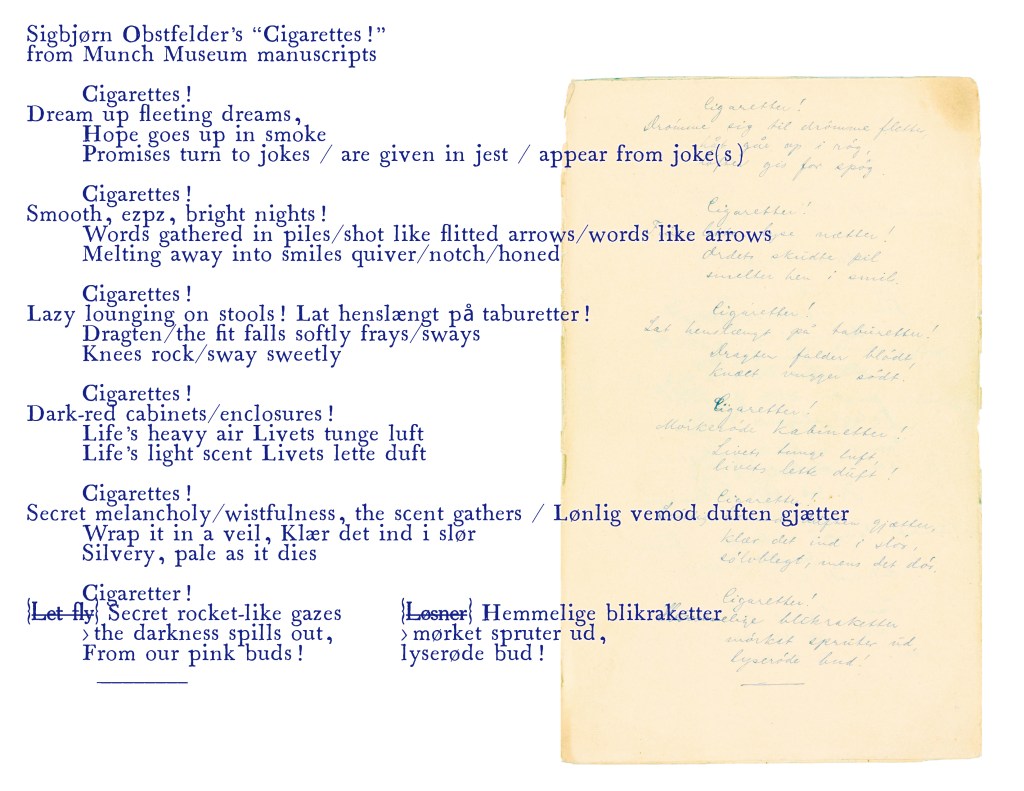 Sigbjørn Obstfelder's “Cigarettes!”
from Munch Museum manuscripts
Cigarettes!
Dream up fleeting dreams,
Hope goes up in smoke
Promises turn to jokes / are given in jest / appear from joke(s)
Cigarettes!
Smooth, ezpz, bright nights!
Words gathered in piles/shot like flitted arrows/words like arrows
Melting away into smiles quiver/notch/honed
Cigarettes!
Lazy lounging on stools! Lat henslængt på taburetter!
Dragten/the fit falls softly frays/sways
Knees rock/sway sweetly
Cigarettes!
Dark-red cabinets/enclosures!
Life's heavy air Livets tunge luft
Life's light scent Livets lette duft
Cigarettes!
Secret melancholy/wistfulness, the scent gathers / Lønlig vemod duften gjætter
Wrap it in a veil, Klær det ind i slør
Silvery, pale as it dies
Cigaretter!
{Let fly} Secret rocket-like gazes
›the darkness spills out,
From our pink buds!
{Løsner} Hemmelige blikraketter
›mørket spruter ud,
lyserøde bud!
Cigaretter!
Drømme sig til drømme flette,
går op i røg,
gis for spøg.
Cigaretter!
lyse nætter!
Ordets skudte pil
smelter hen i smil.
Cigaretter!
Lat henslængt på taburetter!
Dragten falder blødt,
Knæet vugger sødt!
Cigaretter!
Mørkerøde kabinetter!
Livets tunge luft,
livets lette duft!
Cigaretter!
duften gjætter,
klær det ind i slør,
sølvblegt, mens det dør.
Cigaretter!
Hemmelige blikraketter
mørket spruter ud,
lyserøde bud!